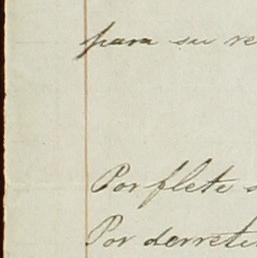 para su re
Por flete s
Por derrete